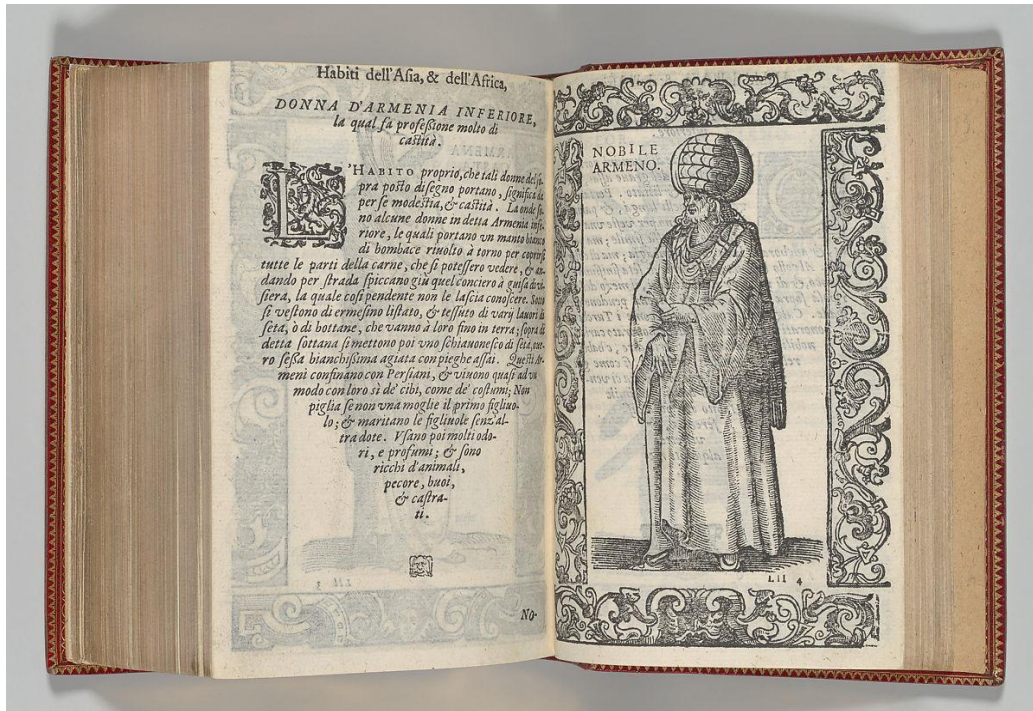 Habiti dell'Asia, & dell'Africa,
DONNA D'ARMENIA INFERIORE,
la qual fa professione molto di
castità.
L'HABITO proprio, che tali donne del so-
pra posto disegno portano, significa da
per se modestia, & castità. La onde so-
no alcune donne in detta Armenia infe-
riore, le quali portano vn manto bianco
di bombace riuolto à torno per coprirsi
tutte le parti della carne, che si potessero vedere, & an-
dando per strada spiccano giù quel conciero à guisa di vi-
siera, la quale così pendente non le lascia conoscere. Sotto
si vestono di ermesino listato, & tessuto di varij lauori di
seta, ò di bottane, che vanno à loro fino in terra; sopra di
detta sottana si mettono poi vno schiauonesco di seta, oue-
ro sessa bianchissima agiata con pieghe assai. Questi Ar-
meni confinano con Persiani, & viuono quasi ad vn
modo con loro sì de' cibi, come de' costumi; Non
piglia se non vna moglie il primo figliuo-
lo; & maritano le figliuole senz'al-
tra dote. Vsano poi molti odo-
ri, e profumi; & sono
ricchi d'animali,
pecore, buoi,
& castra-
ti.
NO-
NOBILE
ARMENO.
LII 4